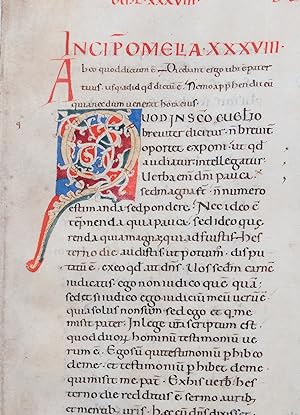 OMEL XXXVIII
INCIP OMELIA · XXXVIII ·
Ab eo quod dictum ē · Dicebant ergo ubi ē pater
tuus · usq; ad id qd dictū ē · Nemo app̄hendit eū
quia necdum venerat hora eius ·
QUOD IN S̄CO EUGLIO
breviter dicitur · n̄ breuit̄
oportet exponi · ut qd
auditur intellegatur ·
Uerba enī dn̄i pauca ·
sed magna s̄ · n̄ numero
estimanda sed pondere · Nec ideo ē
tēpnenda quia pauca · sed ideo quę
renda quia magna · qui adfuistis hes
terno die · audistis ut potuim · dis pu
tatū ē · ex eo qd ait dn̄s · Uos scdm carnē
iudicatis · ego non iudico quēquā ·
sed et si iudico ego · iudiciū meū uerū ē ·
quia solus non sum · sed ego et q me
misit pater · In lege ur̄a scriptum est ·
quod duorȝ hominū testimoniū ue
rum ē · Ego sū qui testimoniū phibeo
de me · et testimoniū phibet de
me qui misit me pat̄ · Ex his uerb̄ hes
terno die redditus ē sermo aurib;
et mentib; ur̄is · hęc cū dn̄s dixiset ·